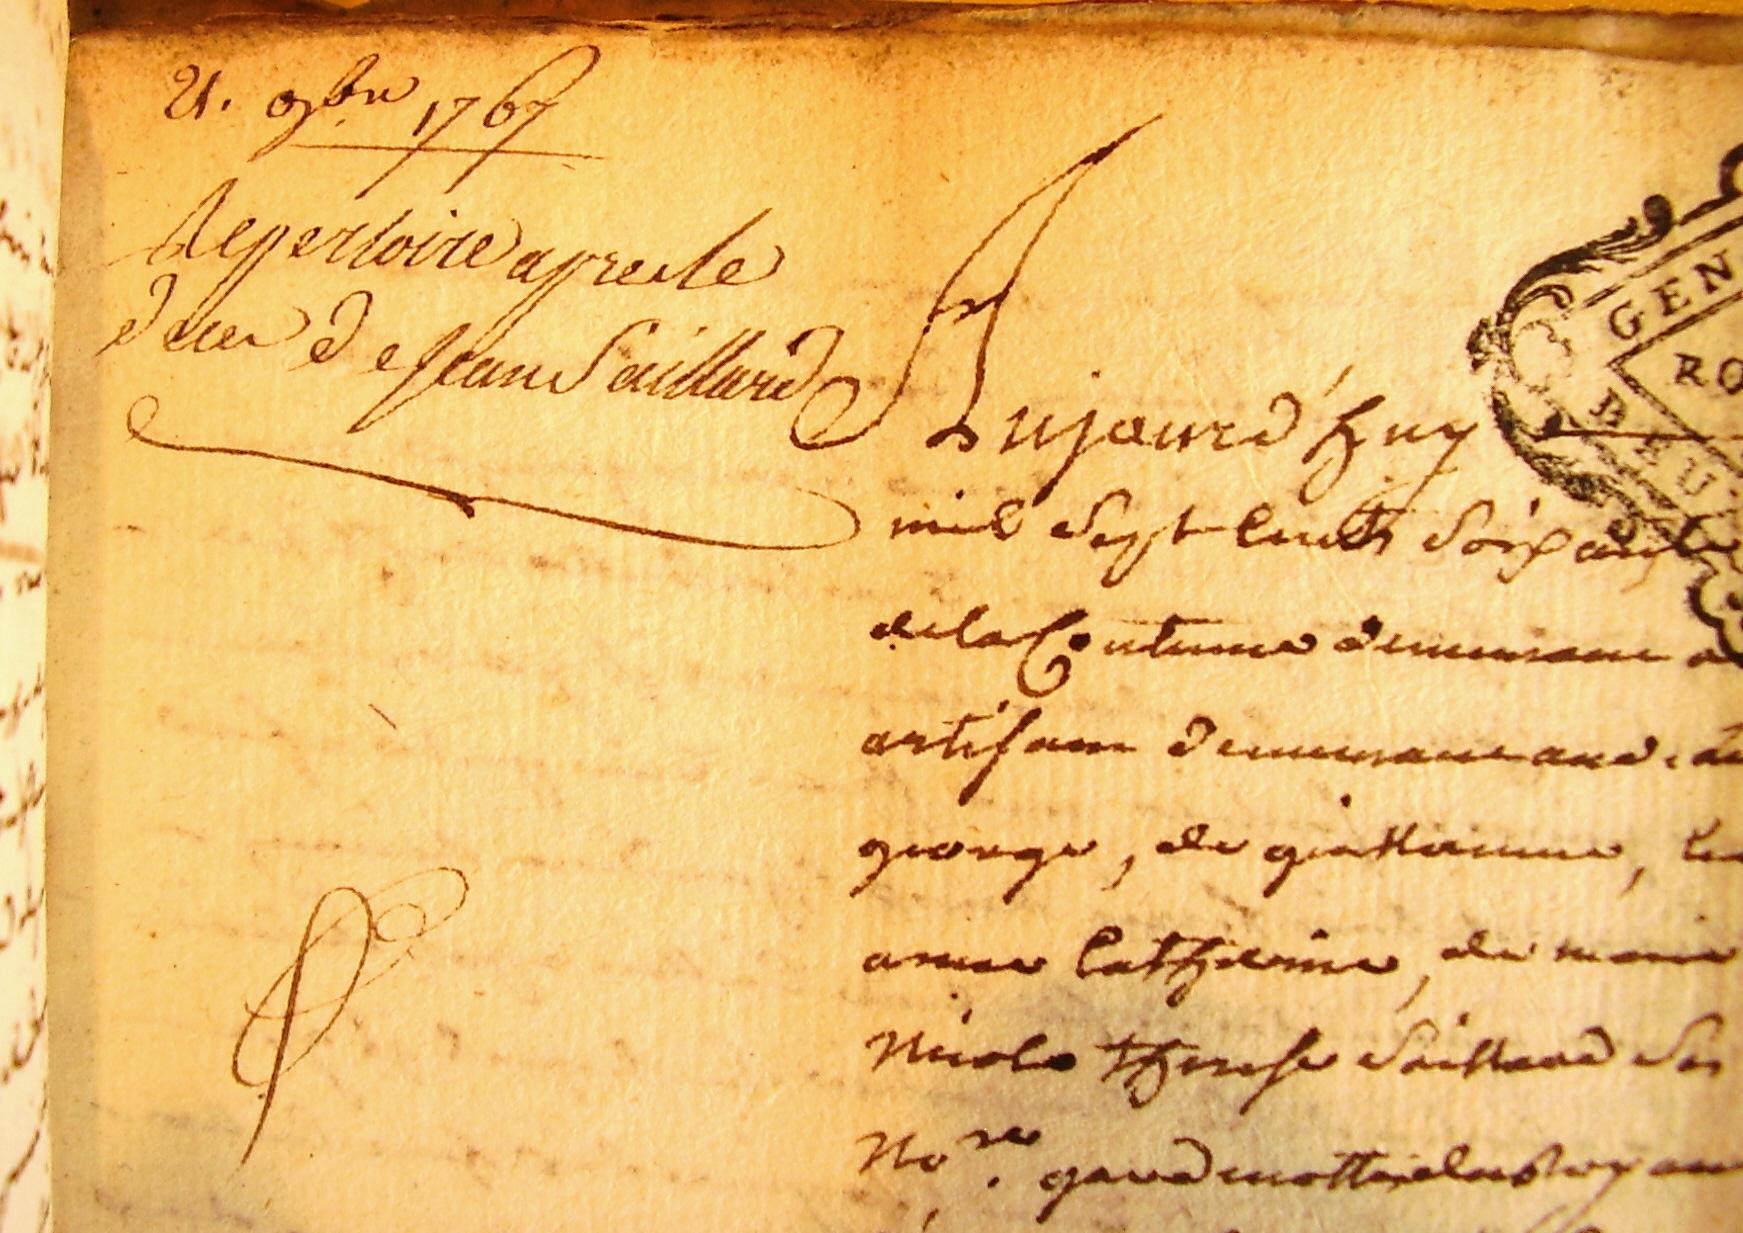 21. 9bre 1767
Repertoire apres le
deces de Jean Saillard
Aujourd'huy
mil Sept Cents Soixante
de la Coutume demeurant a
artisan demeurant aud.
george, de guillaume,
anne Catherine, de marie
Nicole therese Saillard
No.re garde notte du Roy au
GEN
RO
BAU